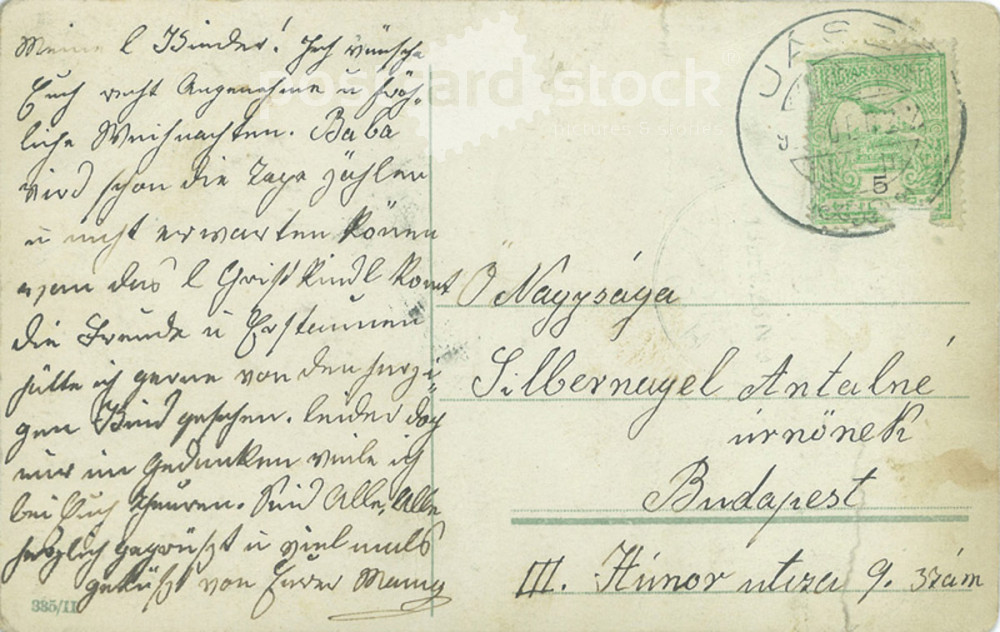 Meine l Kinder! Ich wünsche
Euch recht Angenehme u fröh-
liche Weihnachten. Baba
wird schon die Tage zählen
u nicht erwarten könen
wan das l Christkindl komt
die Freude u Erstaunen
hätte ich gerne von den herzi-
gen Kind gesehen. leider doch
nur im Gedanken weile ich
bei Euch Theuren. Seid Alle, Alle
herzlich gegrüßt u viel mals
geküßt von Eurer Mama
385/II
JÁSZ
MAGYAR KIR. POSTA
5
Ő Nagysága
Silbernagel Antalné
úrnönek
Budapest
III. Hunor utcza 9. szám
postcard stock
pictures & stories